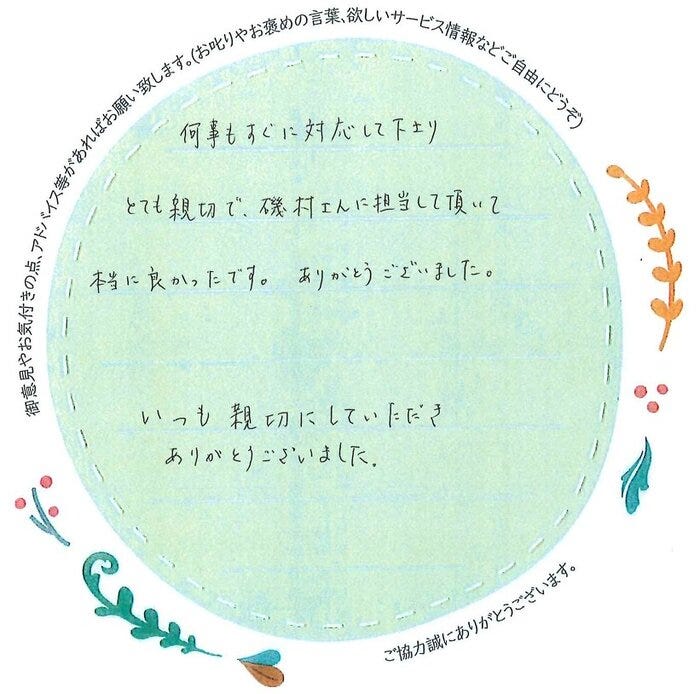 御意見やお気付きの点、アドバイス等があればお願い致します。(お叱りやお褒めの言葉、欲しいサービス情報などご自由にどうぞ)
何事もすぐに対応して下さり
とても親切で、磯村さんに担当して頂いて
本当に良かったです。 ありがとうございました。
いつも親切にしていただき
ありがとうございました。
ご協力誠にありがとうございます。